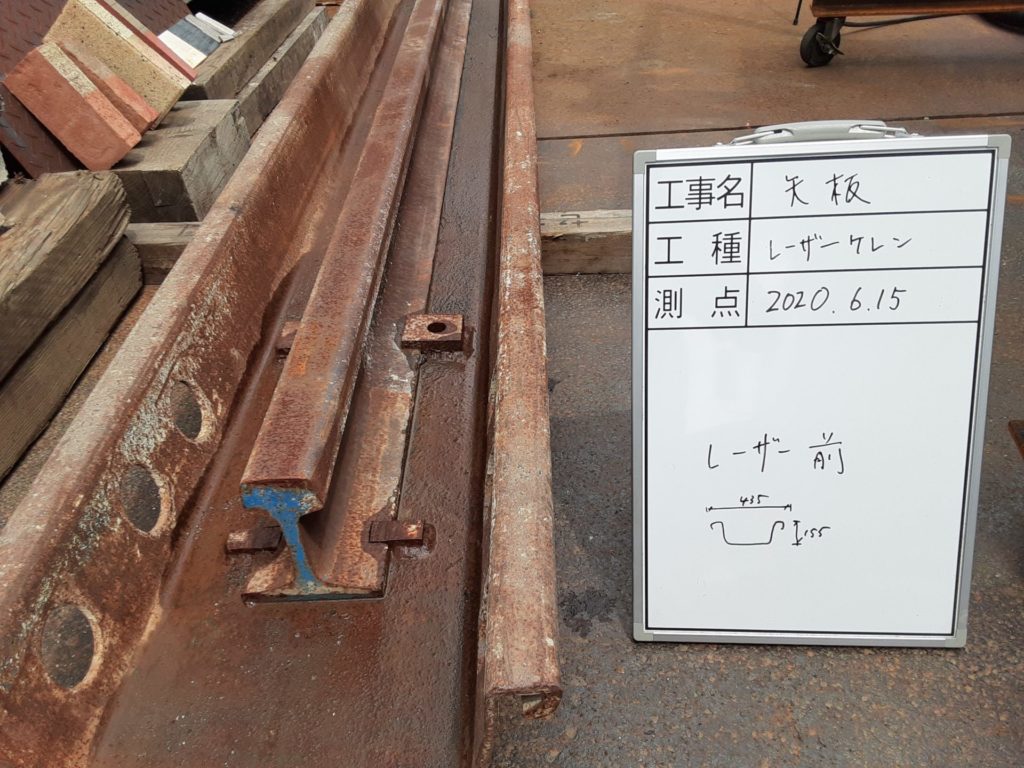 工事名 矢板
工種 レーザーケレン
測点 2020.6.15
レーザー前
435
155